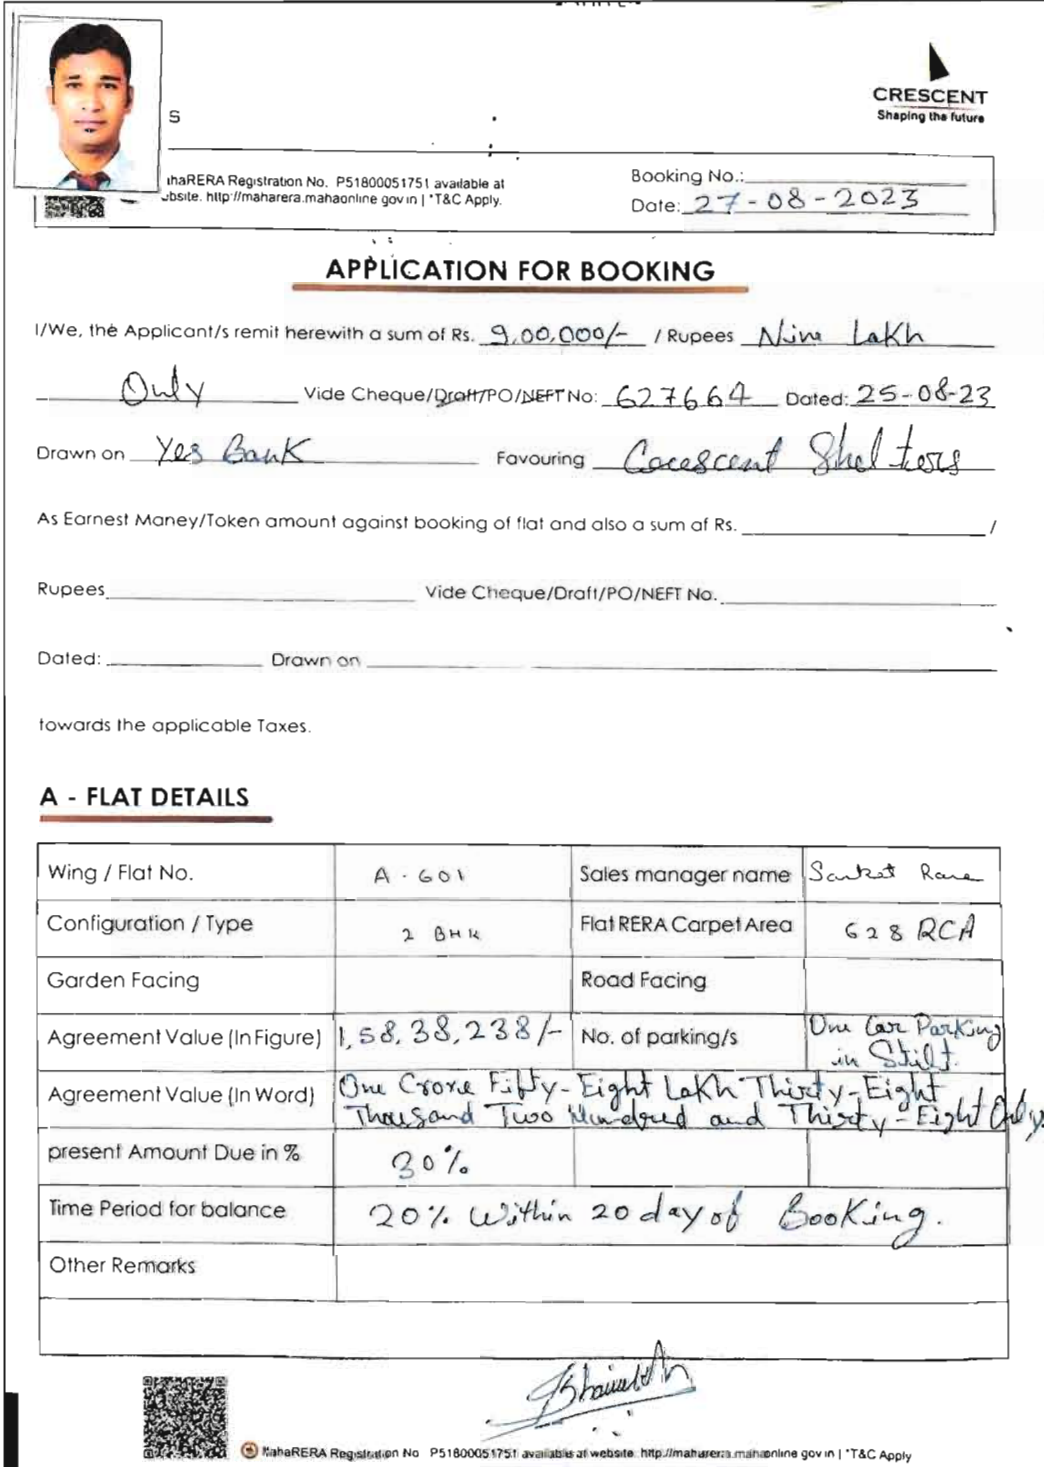 S
CRESCENT
Shaping the future
haRERA Registration No. P51800051751 available at
bsite. http://maharera.mahaonline gov in | *T&C Apply.
Booking No.:
Date: 27-08-2023
APPLICATION FOR BOOKING
I/We, the Applicant/s remit herewith a sum of Rs. 9,00,000/- / Rupees Nine Lakh
Only Vide Cheque/Draft/PO/NEFT No: 627664 Dated: 25-08-23
Drawn on Yes Bank Favouring Cocescent Sheltors
As Earnest Maney/Token amount against booking of flat and also a sum af Rs. /
Rupees Vide Cheque/Draft/PO/NEFT No.
Dated: Drawn on
towards the applicable Taxes.
A - FLAT DETAILS
Wing / Flat No. A-601 Sales manager name Sanket Rane
Configuration / Type 2 BHK Flat RERA Carpet Area 628 RCA
Garden Facing Road Facing
Agreement Value (In Figure) 1,58,38,238/- No. of parking/s One Car Parking in Stilt.
Agreement Value (In Word) One Crore Fifty-Eight Lakh Thirty-Eight
Thousand Two Hundred and Thirty-Eight Only.
present Amount Due in % 30%
Time Period for balance 20% Within 20 day of Booking.
Other Remarks
MahaRERA Registration No P51800051751 available at website http://maharera.mahaonline gov in | *T&C Apply